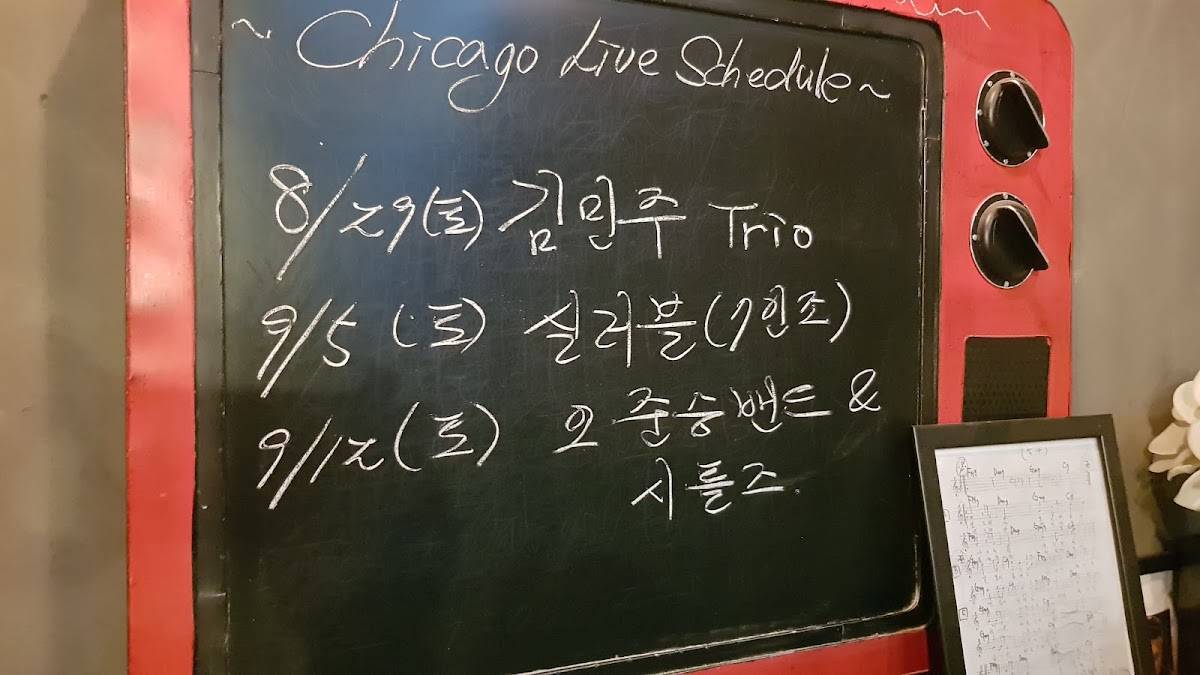 ~ Chicago Live Schedule ~
8/29(토) 김민주 Trio
9/5 (토) 실러블(7인조)
9/12(토) 오준승밴드 &
시틀즈.